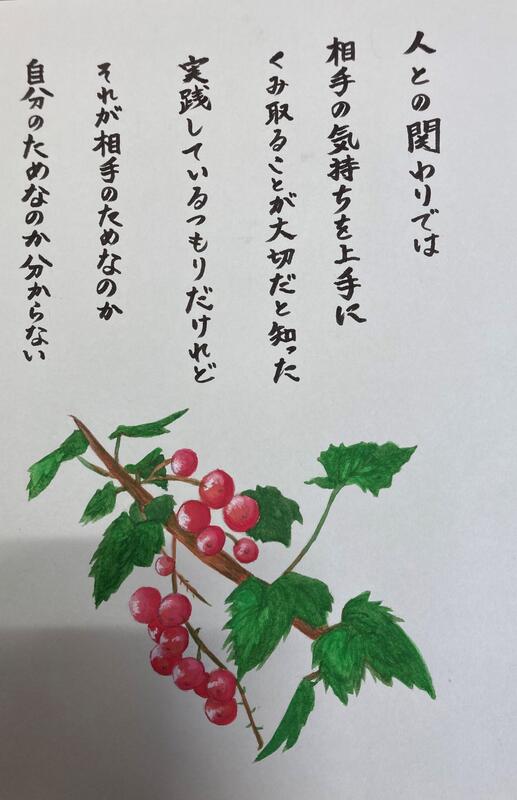 人との関わりでは
相手の気持ちを上手に
くみ取ることが大切だと知った
実践しているつもりだけれど
それが相手のためなのか
自分のためなのか分からない